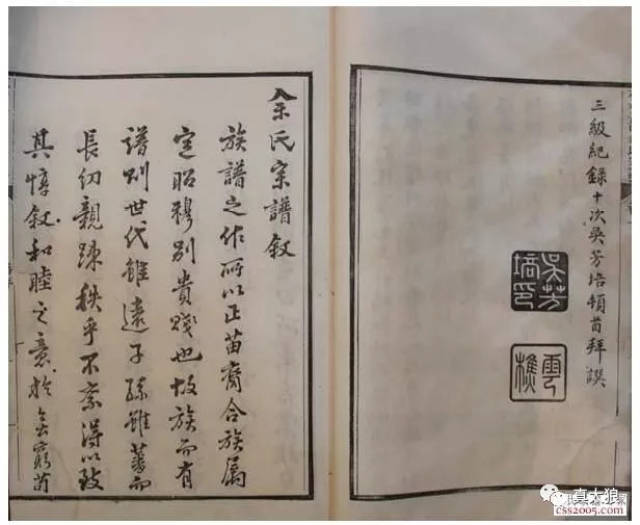 三級紀錄十次吳芳培頓首拜譔
吳芳
培印
雲
樵
余氏宗譜叙
族譜之作所以正苗裔合族屬
定昭穆别貴賤也故族而有
譜則世代雖遠子孫雖蕃而
長幼親踈秩乎不紊得以致
其惇叙和睦之意於無窮苟
真大狼
css2005.com